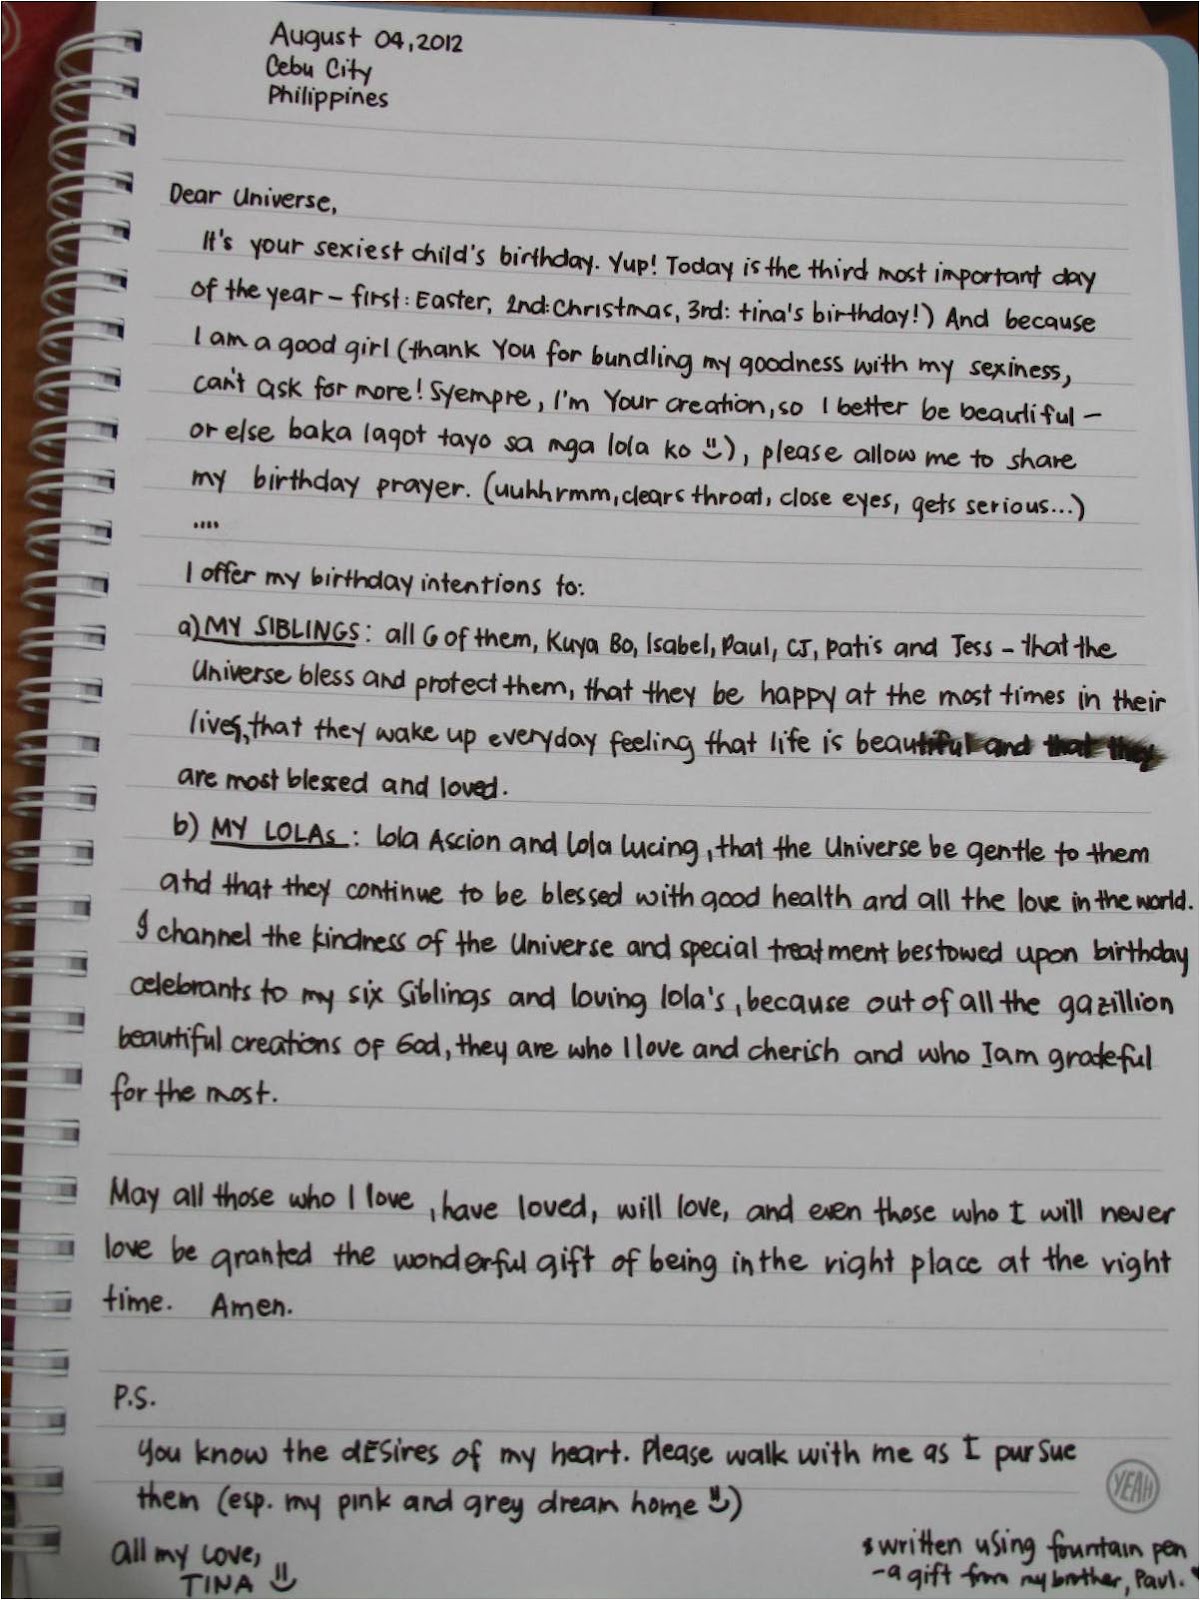 August 04, 2012
Cebu City
Philippines
Dear Universe,
It's your sexiest child's birthday. Yup! Today is the third most important day
of the year - first: Easter, 2nd: Christmas, 3rd: tina's birthday!) And because
I am a good girl (thank You for bundling my goodness with my sexiness,
can't ask for more! Syempre, I'm Your creation, so I better be beautiful -
or else baka lagot tayo sa mga lola ko ☺), please allow me to share
my birthday prayer. (uuhhrmm, clears throat, close eyes, gets serious...)
....
I offer my birthday intentions to:
a) MY SIBLINGS: all 6 of them, Kuya Bo, Isabel, Paul, CJ, patis and Jess - that the
Universe bless and protect them, that they be happy at the most times in their
lives, that they wake up everyday feeling that life is beautiful and that they
are most blessed and loved.
b) MY LOLAs: lola Ascion and lola lucing, that the Universe be gentle to them
and that they continue to be blessed with good health and all the love in the world.
I channel the kindness of the Universe and special treatment bestowed upon birthday
celebrants to my six siblings and loving lola's, because out of all the gazillion
beautiful creations of God, they are who I love and cherish and who I am grateful
for the most.
May all those who I love, have loved, will love, and even those who I will never
love be granted the wonderful gift of being in the right place at the right
time. Amen.
P.S.
You know the dESires of my heart. Please walk with me as I pursue
them (esp. my pink and grey dream home ☺)
YEAH
all my love,
TINA ☺
* written using fountain pen
- a gift from my brother, Paul. ♥